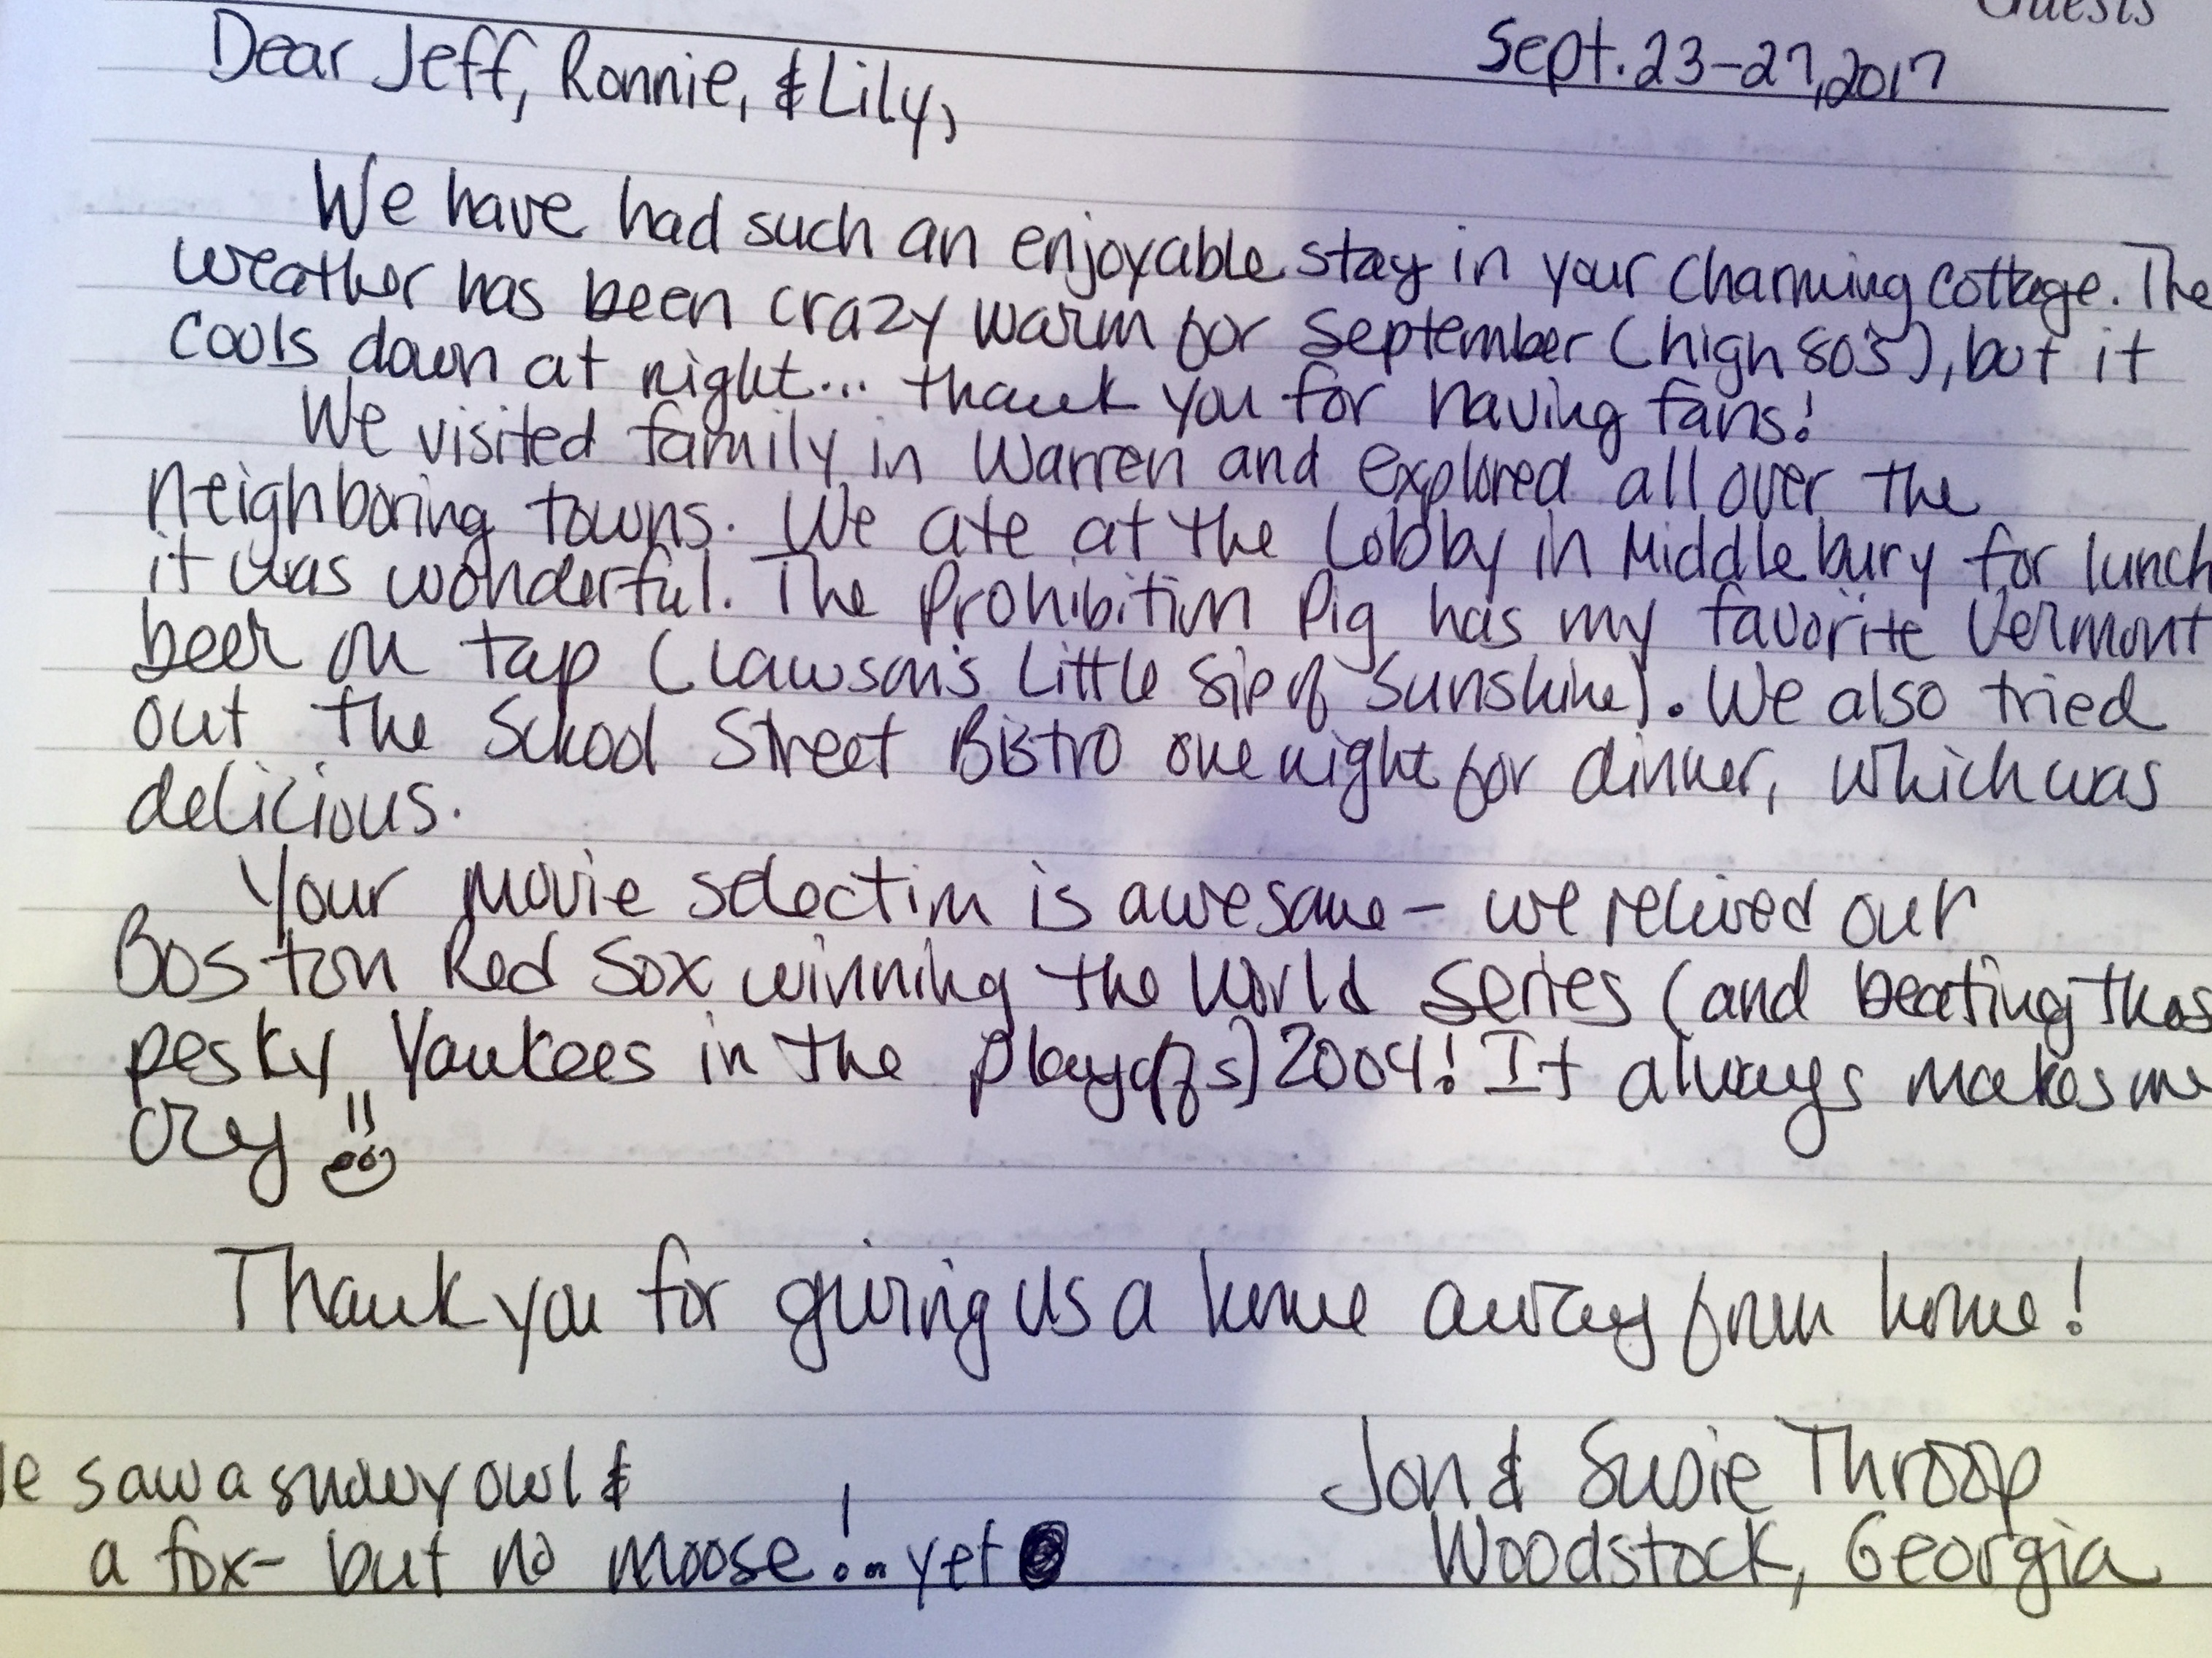 Guests
Dear Jeff, Ronnie, & Lily,
Sept. 23-27, 2017
We have had such an enjoyable stay in your charming cottage. The
weather has been crazy warm for September (high 80's), but it
cools down at night... thank you for having fans!
We visited family in Warren and explored all over the
neighboring towns. We ate at the Lobby in Middlebury for lunch
it was wonderful. The Prohibition Pig has my favorite Vermont
beer on tap (Lawson's Little Sip of Sunshine). We also tried
out the School Street Bistro one night for dinner, which was
delicious.
Your movie selection is awesome - we relived our
Boston Red Sox winning the World Series (and beating thos
pesky Yankees in the playoffs) 2004! It always makes me
cry !!
Thank you for giving us a home away from home!
e saw a snowy owl &
a fox - but no moose!... yet
Jon & Susie Throop
Woodstock, Georgia